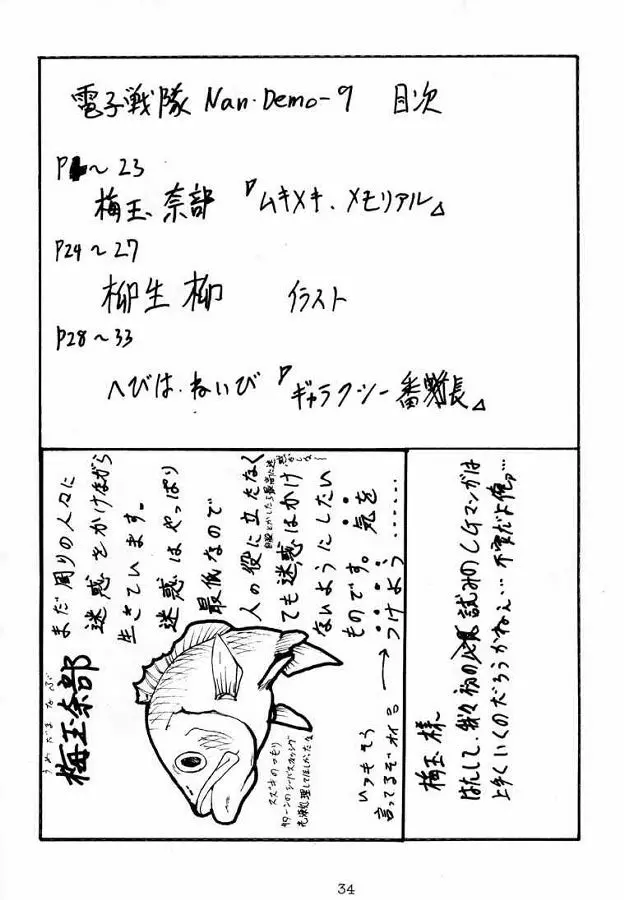 電子戦隊 Nan・Demo-9 目次
P1～23
梅玉奈部 『ムキメキ、メモリアル』
P24～27
柳生柳 イラスト
P28～33
へびは・ねいび 『ギャラクシー番長』
まだ周りの人々に
迷惑をかけながら
生きています。
迷惑はやっぱり
最低なので
人の役に立たなく
ても迷惑はかけ
ないようにしたい
ものです。気を
つけよう……
うめだまなぶ
梅玉奈部
スズキのつもり
いつもそう
言ってるぞオイ
梅玉様
はたして、我々初の試みのCGマンガは
上手くいくのだろうかねぇ…不安だよ俺ァ…
34